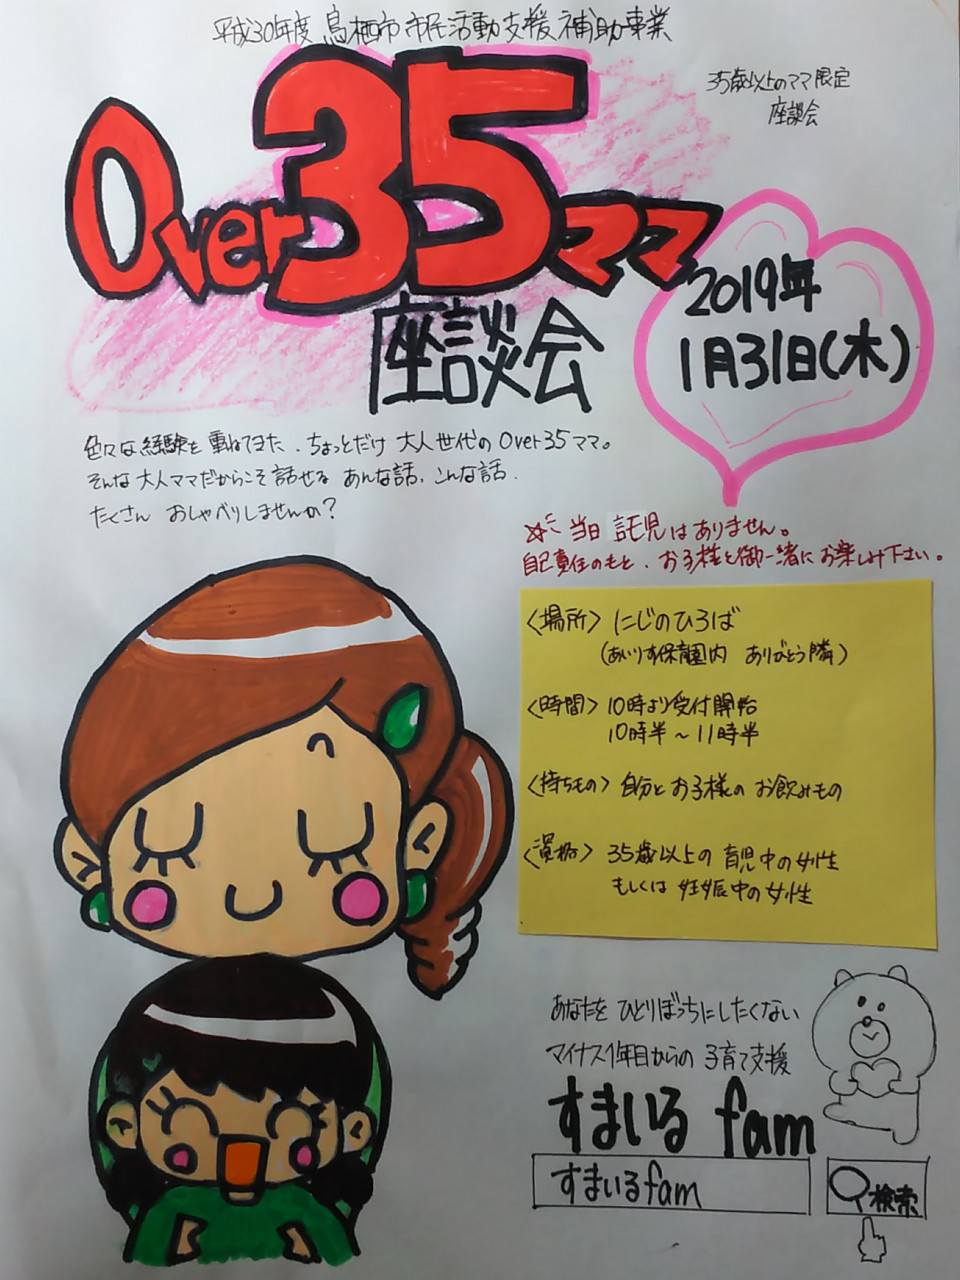 平成30年度 鳥栖市 市民活動支援 補助事業
35歳以上のママ限定
座談会
Over35ママ
座談会
2019年
1月31日(木)
色々な経験を重ねてきた、ちょっとだけ 大人世代のOver35ママ。
そんな大人ママだからこそ話せる あんな話、こんな話、
たくさん おしゃべりしませんか?
☆ 当日 託児はありません。
自己責任のもと、お子様と御一緒にお楽しみ下さい。
<場所> にじのひろば
(あいりす保育園内 ありがとう隣)
<時間> 10時より受付開始
10時半~11時半
<持ちもの> 自分とお子様の お飲みもの
<資格> 35歳以上の 育児中の女性
もしくは 妊娠中の女性
あなたを ひとりぼっちにしたくない
マイナス1年目からの 子育て支援
すまいる fam
すまいるfam
検索